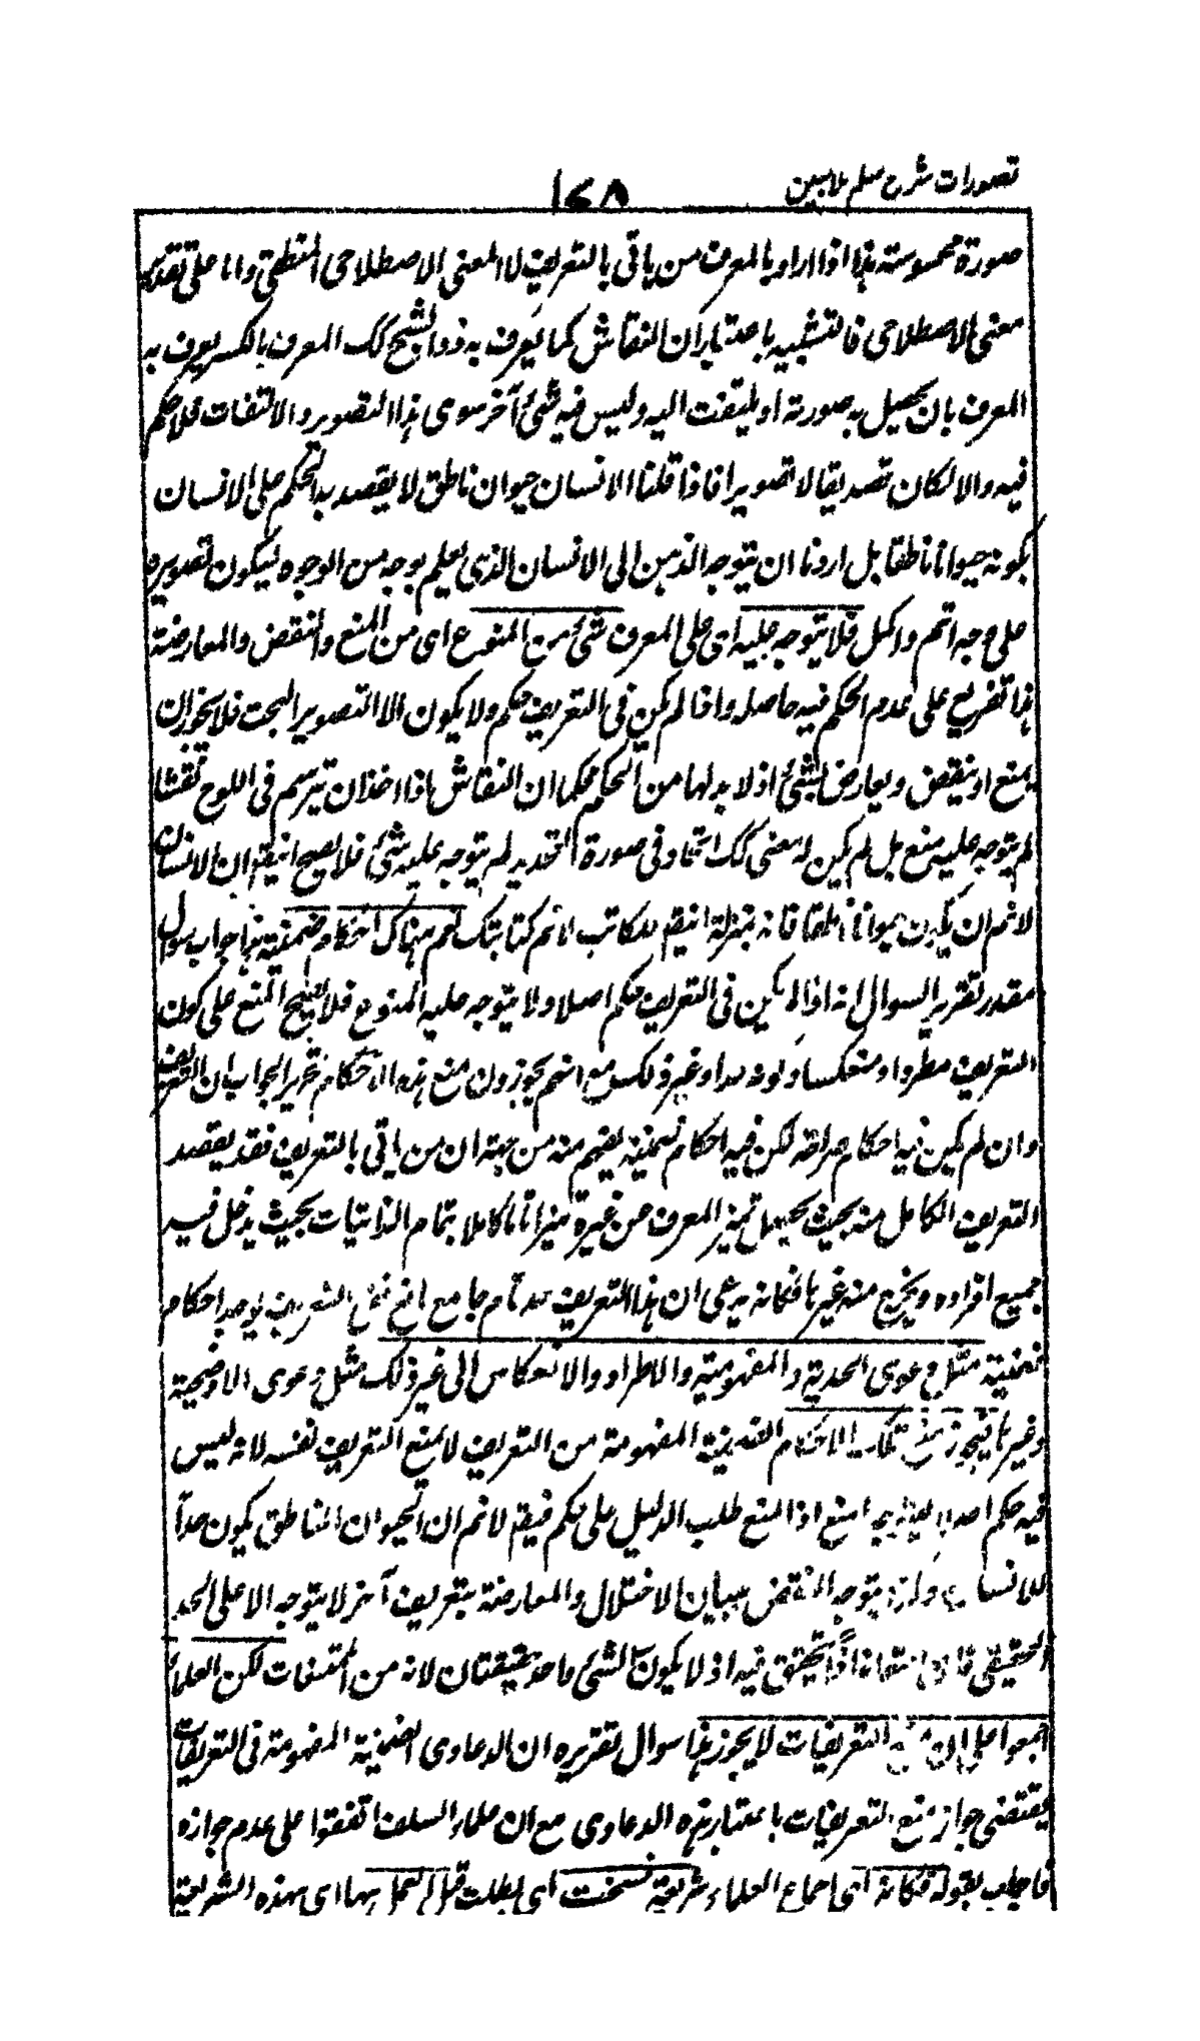 تصورات شرح سلم ملا مبین
۱۷۸
صورة محسوسة هذا اذا اراد بالمعرف من یاتی بالتعریف لا المعنی الاصطلاحی المنطقی واما علی تقدیر
معنی الاصطلاحی فالتشبیه باعتبار ان النقاش کما یعرف به ذو الشبح کک المعرف بالکسر یعرف به
المعرف بان یحصل به صورته او یلتفت الیه ولیس فیه شئ آخر سوی هذا التصویر والالتفات فلا حکم
فیه والا لکان تصدیقا لا تصویرا فاذا قلنا الانسان حیوان ناطق لا یقصد به الحکم علی الانسان
بکونه حیوانا ناطقا بل اردنا ان یتوجه الذهن الی الانسان الذی یعلم بوجه من الوجوه لیکون تصویره
علی وجه اتم واکمل فلا یتوجه علیه ای علی المعرف شئ من المنوع ای من المنع والنقض والمعارضة
هذا تفریع علی عدم الحکم فیه حاصله واذا لم یکن فی التعریف حکم ولا یکون الا التصویر البحت فلا یجوز ان
یمنع او ینقض ویعارض بشئ اذ لا بد لها من الحکم فکما ان النقاش اذا اخذ ان یرسم فی اللوح نقشا
لم یتوجه علیه منع بل لم یکن له معنی کک الحاد فی صورة التحدید لم یتوجه علیه شئ فلا یصح ان یقم ان الانسان
لانم ان یکون حیوانا ناطقا فانه بمنزلة ان یقم للکاتب لانم کتابتک نعم هناک احکام ضمنیة هذا جواب سوال
مقدر تقریر السوال انه اذا لم یکن فی التعریف حکم اصلا ولا یتوجه علیه المنوع فلا یصح المنع علی کون
التعریف مطردا ومنعکسا وکونه حدا وغیر ذلک مع انهم یجوزون منع هذه الاحکام تحریر الجواب ان التعریف
وان لم یکن فیه احکام صراحة لکن فیه احکام ضمنیة یفهم منه من جهة ان من یاتی بالتعریف فقد یقصد
التعریف الکامل منه بحیث یحصل تمیز المعرف عن غیره تمیزا تاما کاملا بتمام الذاتیات بحیث یدخل فیه
جمیع افراده ویخرج منه غیرها فکانه یدعی ان هذا التعریف حد تام جامع مانع فمن التعریف یوجد احکام
ضمنیة مثل دعوی الحدیة والمفهومیة والاطراد والانعکاس الی غیر ذلک مثل دعوی الاوضحیة
وغیرها فیجوز منع تلک الاحکام الضمنیة المفهومة من التعریف لا یمنع التعریف نفسه لانه لیس
فیه حکم اصلا یمنع اذ المنع طلب الدلیل علی حکم فیقم لانم ان الحیوان الناطق یکون حدا
للانسان یتوجه النقض ببیان الاختلال والمعارضة بتعریف آخر لا یتوجه الا علی الحد
الحقیقی یتحقق فیه اذ لا یکون لشئ واحد حقیقتان لانه من الممتنعات لکن العلماء
اجمعوا علی ان منع التعریفات لا یجوز هذا سوال تقریره ان الدعاوی الضمنیة المفهومة فی التعریفات
یقتضی جواز منع التعریفات باعتبار هذه الدعاوی مع ان علماء السلف اتفقوا علی عدم جوازه
فاجاب بقوله فکانه ای اجماع العلماء شریعة نسخت ای بطلت قبل العمل بها ای بهذه الشریعة